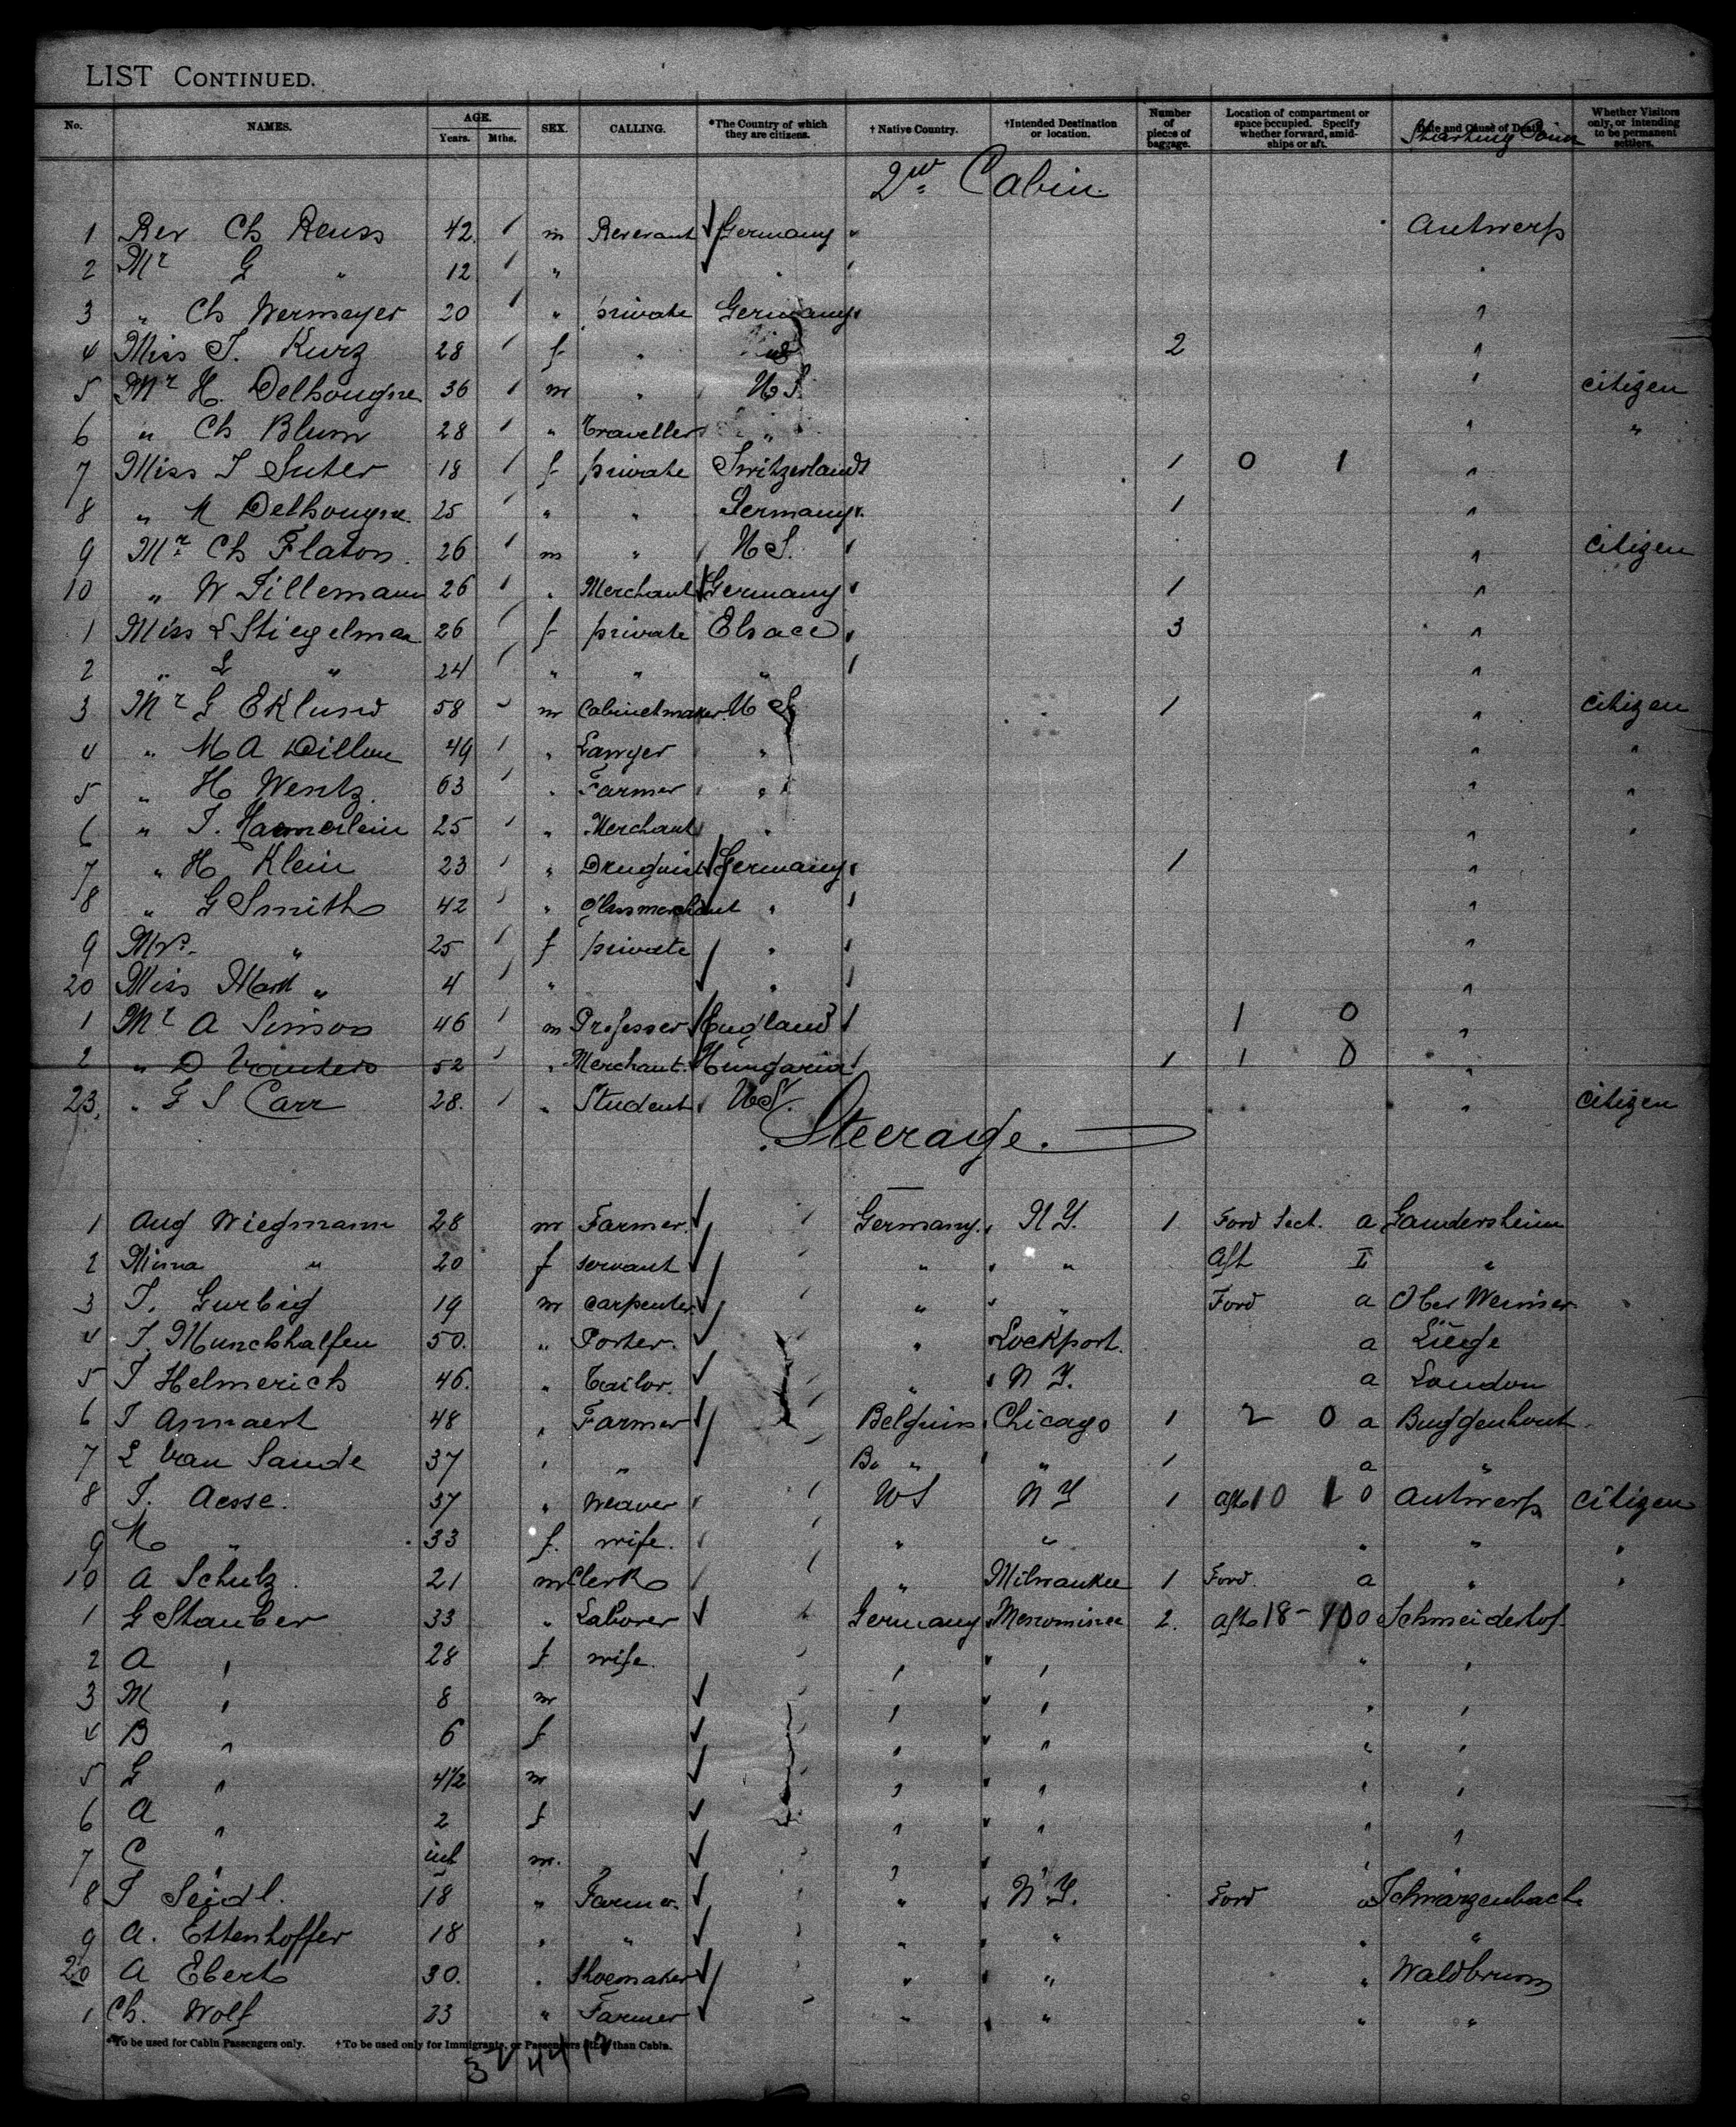 LIST CONTINUED.
No. NAMES. AGE. Years. Mths. SEX. CALLING. *The Country of which they are citizens. †Native Country. †Intended Destination or location. Number of pieces of baggage. Location of compartment or space occupied. Specify whether forward, amidships or aft. Date and Cause of Death. Starting Poin Whether Visitors only, or intending to be permanent settlers.
2nd Cabin
1 Rev Ch Reuss 42 m Reverant Germany Antwerp
2 Mr G " 12 " " "
3 " Ch Wermeyer 20 " private Germany "
4 Miss T. Kurz 28 f " 2 "
5 Mr H. Delhougne 36 m " US " citizen
6 " Ch Blum 28 " Traveller " " "
7 Miss T Suter 18 f private Switzerland 1 0 1 "
8 " M Delhougne 25 " " Germany 1 "
9 Mr Ch Flaton 26 m " US. " citizen
10 " W Tillemann 26 " Merchant Germany 1 "
1 Miss L Stiegelman 26 f private Elsace 3 "
2 " L " 24 " " " "
3 Mr G Eklund 58 m Cabinetmaker US 1 " citizen
4 " M A Dillon 49 " Lawyer " " "
5 " H Wentz. 63 " Farmer " " "
6 " T. Haemerlein 25 " Merchant " " "
7 " H Klein 23 " Druguist Germany 1 "
8 " G Smith 42 " Glassmerchant " "
9 Mrs. " 25 f private " "
20 Miss " 4 " " "
1 Mr A Simson 46 m Professer England 1 0 "
2 " D 52 " Merchant. Hungaria 1 1 0 "
23. " G S Carr 28. " Student US. " citizen
Steerage.
1 Aug Wiegmann 28 m Farmer. Germany. N Y. 1 Ford Sect. a Gandersheim
2 Minna " 20 f servant " " Aft II "
3 T. Gurbig 19 m carpenter " " Ford a Ober Weimer
4 T. Munchhalfen 50. " Porter. " Lockport. a Liége
5 T Helmerich 46. " Tailor. " N Y. a London
6 T Annaert 48 " Farmer Belguim Chicago 1 2 0 a Buggenhout
7 L Van Sande 37 " " Be " " 1 a "
8 T. Aesse. 37 " Weaver US N Y 1 aft 10 1 0 Antwerp citizen
9 M " 33 f. wife. " " " " "
10 A Schulz. 21 m Clerk " Milwaukee 1 Ford. a " "
1 G Stauber 33 " Laborer Germany Menominee 2. aft 18 - 10 0 Schneiderhof
2 A " 28 f wife. " " " "
3 M " 8 m " " " "
4 B " 6 f " " " "
5 G " 4 1/2 m " " " "
6 A " 2 f " " " "
7 C " inf m. " " " "
8 T Seidl. 18 " Farmer. " N Y. Ford " Schwarzenbach
9 A. Ettenhoffer 18 " " " " " "
20 A Ebert 30. " Shoemaker " " " Waldbrunn
1 Ch. Wolf 23 " Farmer " " " "
*To be used for Cabin Passengers only. †To be used only for Immigrants, or Passengers other than Cabin.